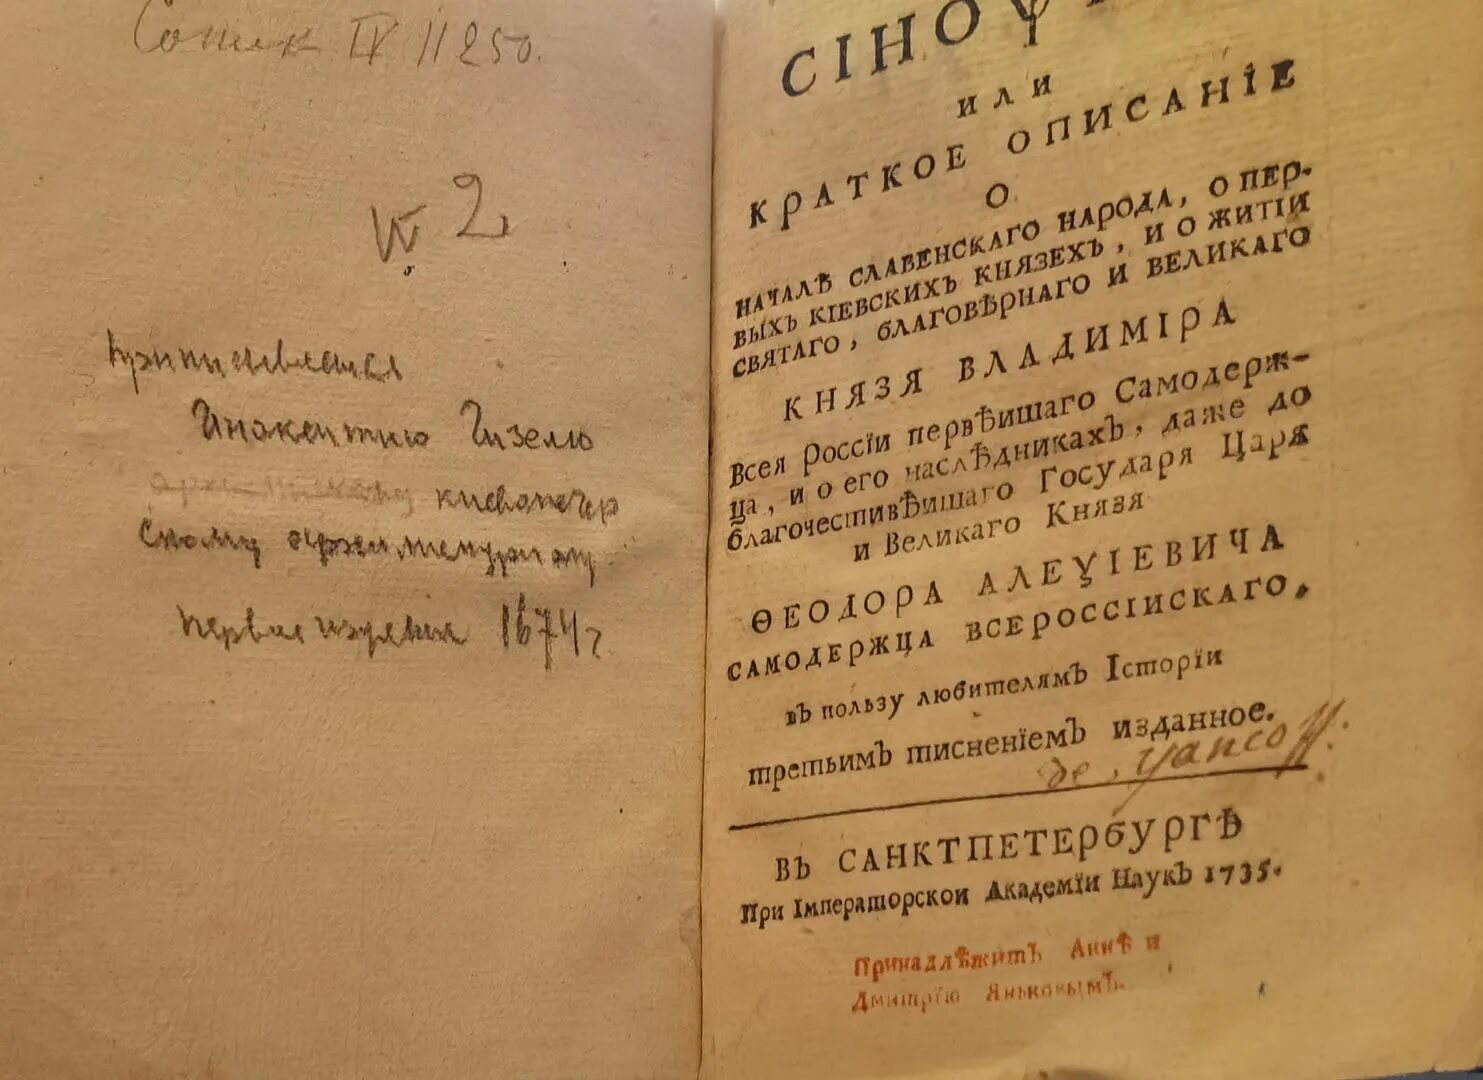 Сотик IV 11250.
2
Приписывается
Инокентию Гизелю
киевопечер
скому архимандриту
первое издание 1674 г
СІНОѰ
ИЛИ
КРАТКОЕ ОПИСАНІЕ
О
НАЧАЛѢ СЛАВЕНСКАГО НАРОДА, О ПЕР-
ВЫХЪ КІЕВСКИХЪ КНЯЗЕХЪ, И О ЖИТІИ
СВЯТАГО, БЛАГОВѢРНАГО И ВЕЛИКАГО
КНЯЗЯ ВЛАДИМІРА
Всея Россіи первѣишаго Самодерж-
ца, и о его наслѣдникахъ, даже до
благочестивѣишаго Государя Царя
и Великаго Князя
ѲЕОДОРА АЛЕѮІЕВИЧА
САМОДЕРЖЦА ВСЕРОССІИСКАГО,
въ пользу любителямъ Історіи
третьимъ тисненіемъ изданное.
de Yancoff.
ВЪ САНКТПЕТЕРБУРГѢ
При Імператорскои Академіи Наукъ 1735.
Принадлѣжитъ Аннѣ и
Дмитрію Яньковымъ.